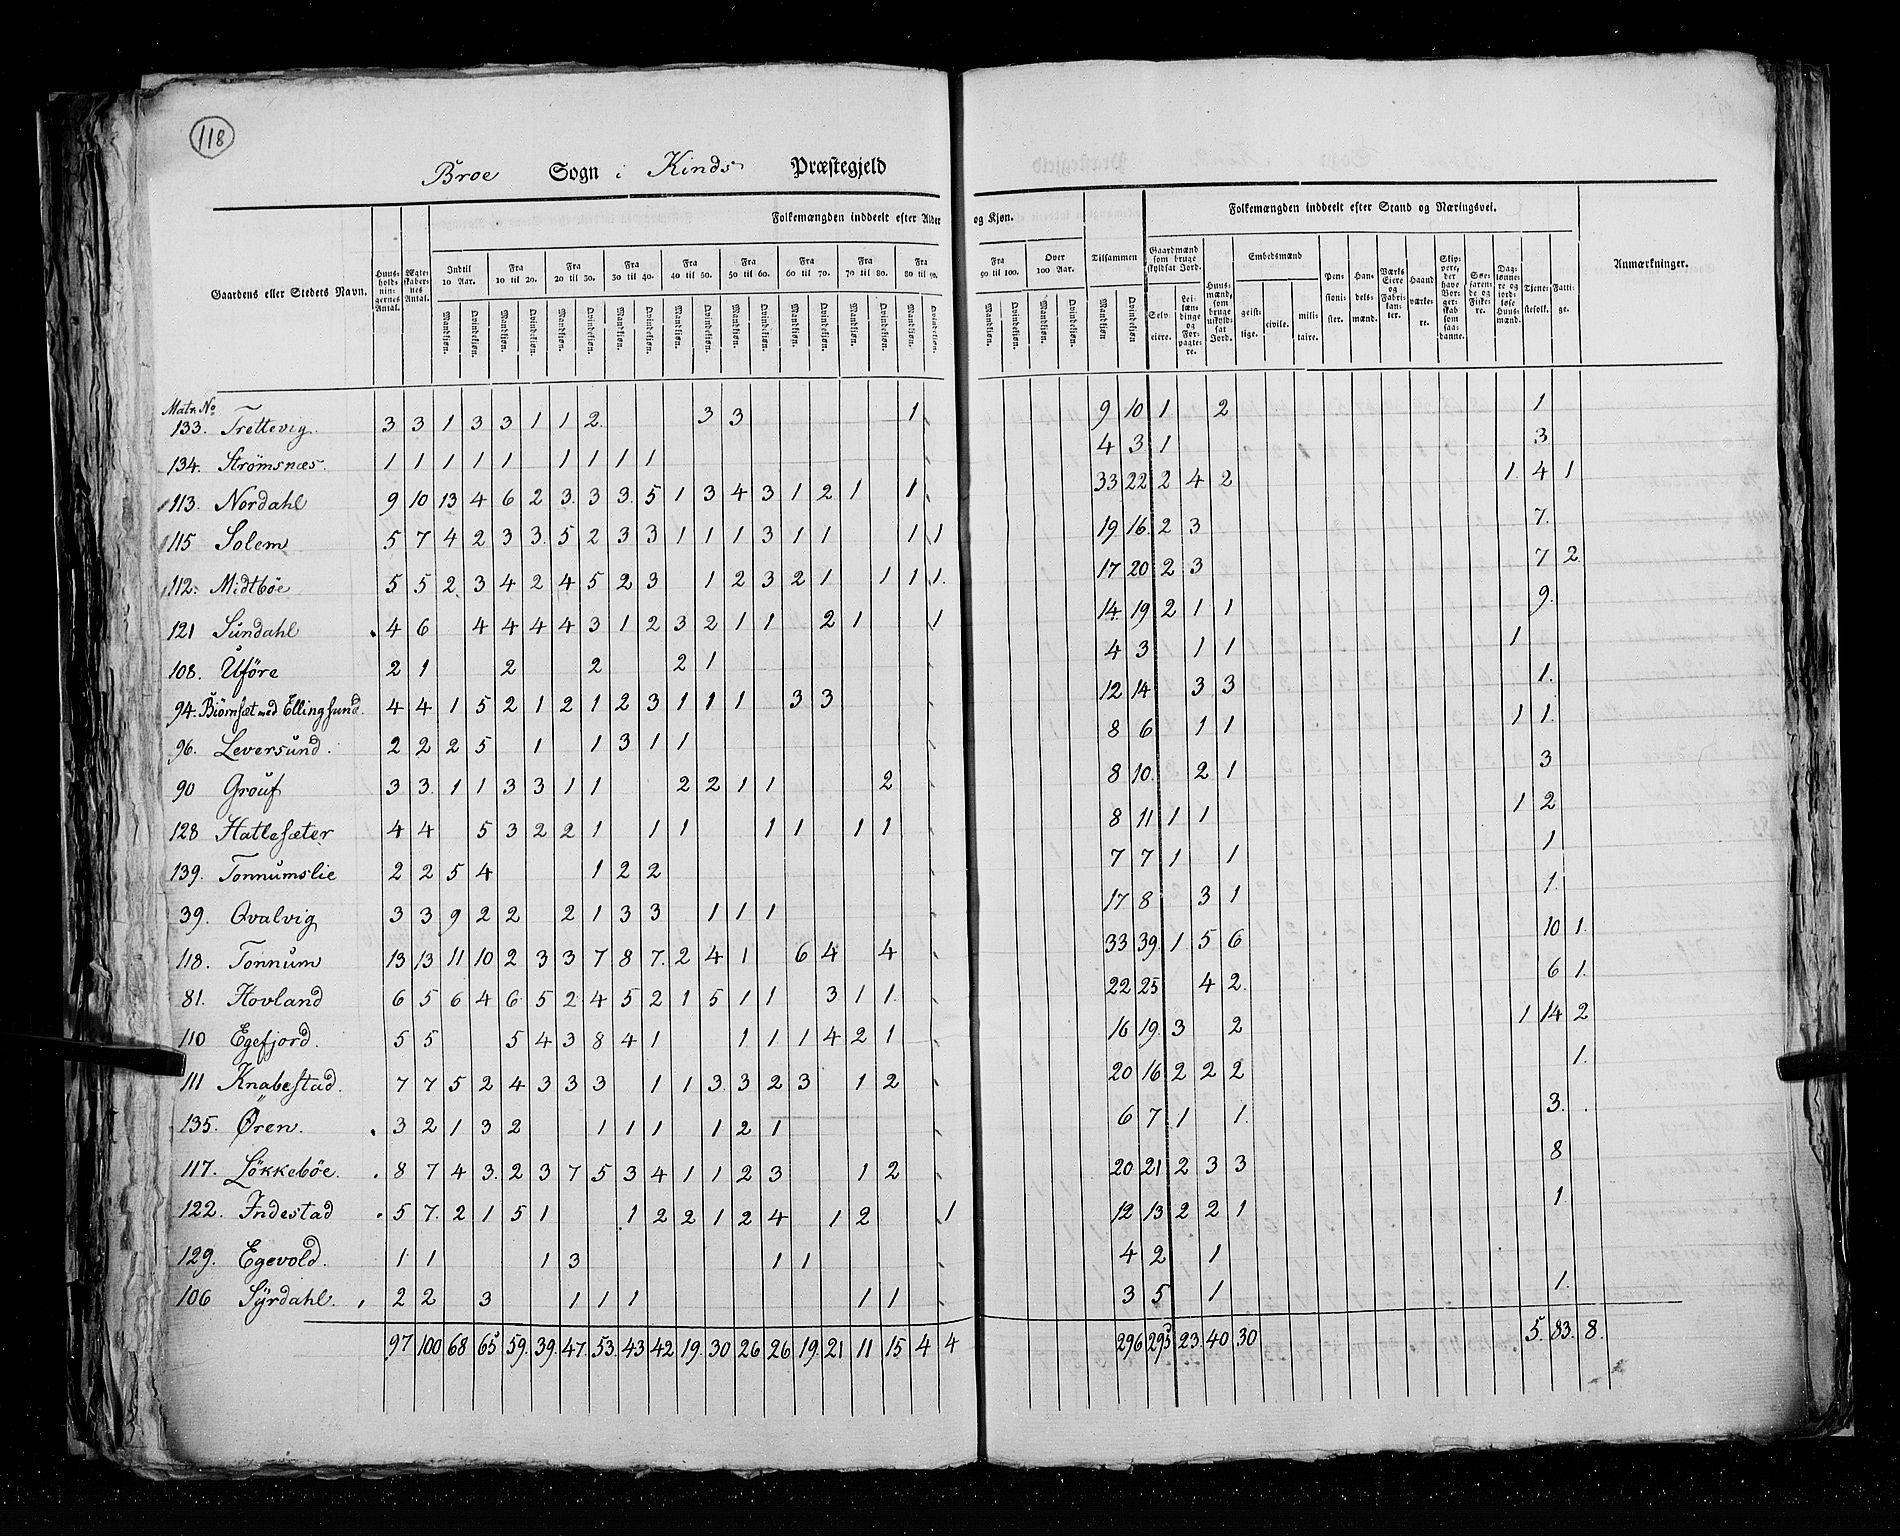 118
Broe Sogn i Kinds Præstegjeld
Folkemængden inddeelt efter Alder og Kjøn. Folkemængden inddeelt efter Stand og Næringsvei.
Gaardens eller Stedets Navn. Huusholdningernes Antal. Ægteskabernes Antal. Indtil 10 Aar. Fra 10 til 20. Fra 20 til 30. Fra 30 til 40. Fra 40 til 50. Fra 50 til 60. Fra 60 til 70. Fra 70 til 80. Fra 80 til 90. Fra 90 til 100. Over 100 Aar. Tilsammen Gaardmænd som bruge skyldsat Jord. Huusmænd, som bruge uskyldsat Jord. Embedsmænd Pensionister. Handelsmænd. Værks Eiere og Fabrikanter. Haandværkere. Skippere, der have Borgerskab som saadanne. Søefarende og Fiskere. Daglønnere og jordløse Huusmænd. Tjenestefolk. Fattige. Anmærkninger.
Mandkjøn. Qvindekjøn. Mandkjøn. Qvindekjøn. Mandkjøn. Qvindekjøn. Mandkjøn. Qvindekjøn. Mandkjøn. Qvindekjøn. Mandkjøn. Qvindekjøn. Mandkjøn. Qvindekjøn. Mandkjøn. Qvindekjøn. Mandkjøn. Qvindekjøn. Mandkjøn. Qvindekjøn. Mandkjøn. Qvindekjøn. Mandkjøn Qvindekjøn Selveiere. Leilændinge og Forpagtere. geistlige. civile. militaire.
Matr. No
133. Trettevig. 3 3 1 3 3 1 1 2. 3 3 1 9 10 1 2 1
134. Strömsnæs. 1 1 1 1 1 1 1 1 1 4 3 1 3
113. Nordahl 9 10 13 4 6 2 3. 3 3. 5 1 3 4 3 1 2 1 1 33 22 2 4 2 1. 4 1
115 Solem 5 7 4 2 3 3. 5 2 3 3 1 1 1 3 1 1 1 1 19 16. 2 3 7.
112. Midtböe 5 5 2 3 4 2 4 5 2 3 1 2 3 2 1 1 1 1. 17 20 2 3 7 2
121 Sundahl 4 6 4 4 4 4 3 1 2 3 2 1 1 2 1 1 14. 19 2 1 1 9.
108. Uföre 2 1 2 2 2 1 4 3 1 1 1
94. Biörnsæt med Ellingsund. 4 4 1 5 2 1 2 1 2 3 1 1 1 3 3 12 14 3 3 1.
96. Leversund. 2 2 2 5 1 1 3 1 1 8 6 1 1 1 1.
90 Grouf 3 3. 1 1 3 3 1 1 2 2 1 1 2 8 10. 2 1 3
128 Hatlesæter 4 4 5 3 2 2 1 1 1 1 1 1 1 8 11 1 1 1 2
139. Tonnumslie 2 2 5 4 1 2 2 7 7 1 1 1
39. Qvalvig 3 3 9 2 2 2 1 3 3 1 1 1 17 8 3 1 1.
118. Tonnum 13 13 11 10 2 3 3 7 8 7. 2 4 1 6 4 4 33 39. 1 5 6 10 1.
81. Hovland 6 5 6 4 6 5 2 4 5 2 1 5 1 1 3 1 1. 22 25 4 2. 6 1.
110 Egefjord. 5 5 5 4 3 8 4 1 1 1 1 4 2 1 16 19. 3 2 1 14 2
111 Knabestad. 7 7 5 2 4 3 3 3 1 1 3. 3 2 3 1 2 20 16 2 2 2 1.
135. Øren. 3 2 1 3 2 1 1 1 1 2 1 6 7 1 1. 3.
117. Løkkebøe. 8 7 4 3. 2 3 7 5 3 4 1 1 2 3 1 2 20 21 2 3 3 8
122. Indestad 5 7. 2 1 5 1 1 2 2 1 2 4 1 2 1 12 13 2 2 1 1
129. Egevold. 1 1 1 3 1 1 4 2 1
106 Sÿrdahl. 2 2 3 1 1 1 1 1 3 5 1 1.
97 100 68 65 59. 39. 47. 53. 43 42 19. 30 26 26 19. 21 11 15 4 4 296 295 23. 40 30 5. 83. 8.